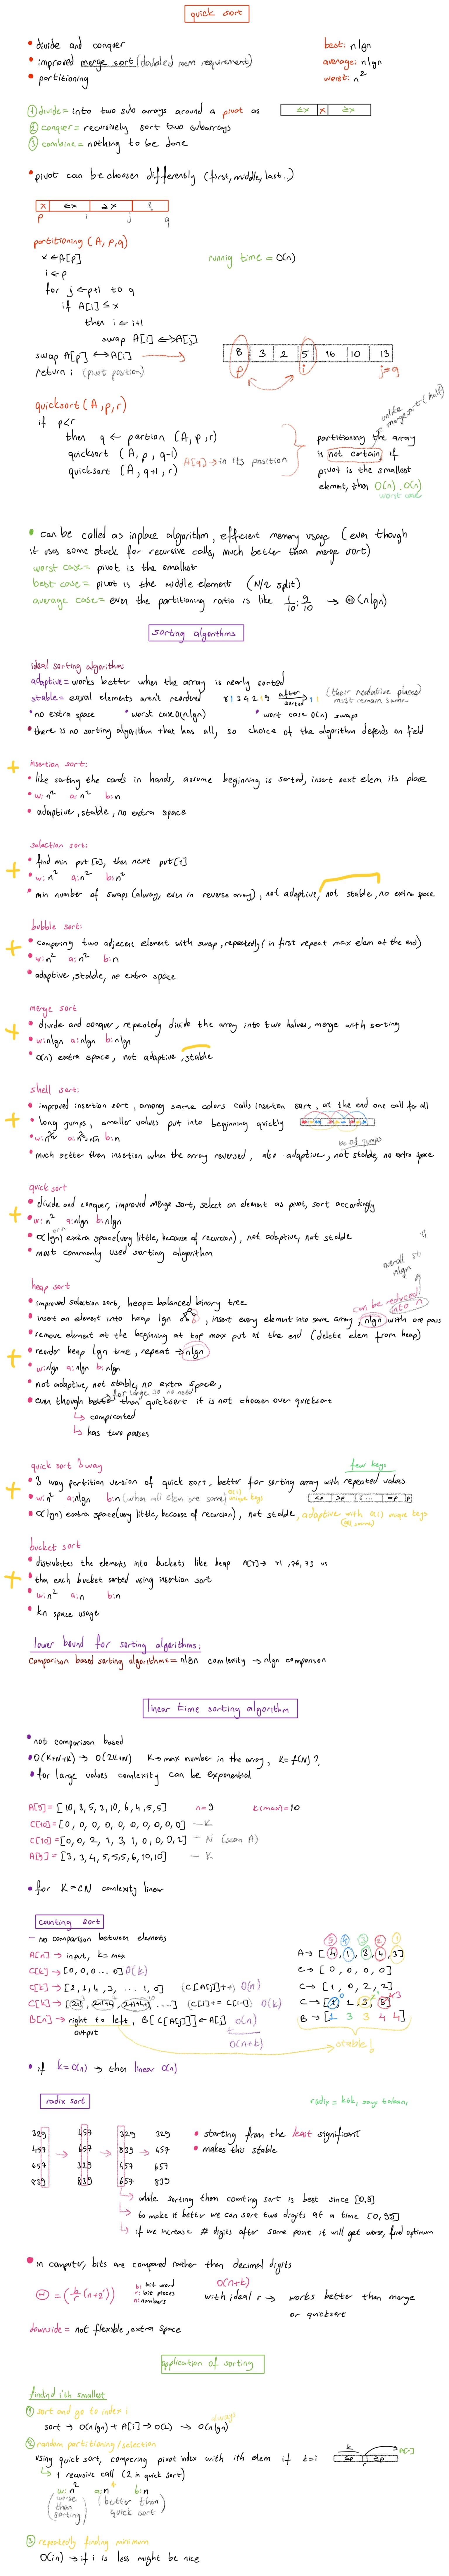 quick sort
• divide and conquer
• improved merge sort (doubled mem requirement)
• partitioning
best: nlgn
average: nlgn
worst: n²
① divide = into two sub arrays around a pivot as
≤x x ≥x
② conquer = recursively sort two subarrays
③ combine = nothing to be done
• pivot can be choosen differently (first, middle, last..)
x ≤x ≥x
p i j q
partitioning (A, p, q)
x ← A[p]
i ← p
for j ← p+1 to q
if A[j] ≤ x
then i ← i+1
swap A[i] ↔ A[j]
swap A[p] ↔ A[i]
return i (pivot position)
running time = O(n)
8 3 2 5 16 10 13
p i j=q
quicksort (A, p, r)
if p<r
then q ← partion (A, p, r)
quicksort (A, p, q-1)
quicksort (A, q+1, r)
A[q] → in its position
unlike merge sort (half)
partitioning the array
is not certain, if
pivot is the smallest
element, then O(n) . O(n)
worst case
• can be called as inplace algorithm, efficient memory usage (even though
it uses some stack for recursive calls, much better than merge sort)
worst case = pivot is the smallest
best case = pivot is the middle element (N/2 split)
average case = even the partitioning ratio is like 1/10 : 9/10 → Θ(nlgn)
sorting algorithms
ideal sorting algorithm:
adaptive = works better when the array is nearly sorted
stable = equal elements aren't reordered 8 1 3 4 2 1 9 after sorted 1 1 (their relative places must remain same)
• no extra space • worst case O(n.lgn) • wort case O(n) swaps
• there is no sorting algorithm that has all, so choice of the algorithm depends on field
insertion sort:
• like sorting the cards in hands, assume beginning is sorted, insert next elem its place
• w: n² a: n² b: n
• adaptive, stable, no extra space
selection sort:
• find min put [0], then next put [1]
• w: n² a: n² b: n²
• min number of swaps (alway, even in reverse array), not adaptive, not stable, no extra space
bubble sort:
• comparing two adjecent element with swap, repeatedly (in first repeat max elem at the end)
• w: n² a: n² b: n
• adaptive, stable, no extra space
merge sort
• divide and conquer, repeatedly divide the array into two halves, merge with sorting
• w: nlgn a: nlgn b: nlgn
• O(n) extra space, not adaptive, stable
shell sort:
• improved insertion sort, among same colors calls insertion sort, at the end one call for all
• long jumps, smaller values put into beginning quickly
no of jumps
• much better than insertion when the array reversed, also adaptive, not stable, no extra space
quick sort
• divide and conquer, improved merge sort, select an element as pivot, sort accordingly
• w: n² a: nlgn b: nlgn
• O(lgn) extra space (very little, because of recursion), not adaptive, not stable
• most commonly used sorting algorithm
heap sort
• improved selection sort, heap = balanced binary tree
• insert an element into heap lgn, insert every element into some array, nlgn with one pass
can be reduced into n
• remove element at the beginning at top max put at the end (delete elem from heap)
• reorder heap lgn time, repeat → nlgn
• w: nlgn a: nlgn b: nlgn
• not adaptive, not stable, no extra space,
• even though better than quicksort it is not choosen over quicksort
for large so no need
↳ complicated
↳ has two passes
quick sort 3 way
few keys
• 3 way partition version of quick sort, better for sorting array with repeated values
• w: n² a: nlgn b: n (when all elem are same) O(1) unique keys
• O(lgn) extra space (very little, because of recursion), not stable, adaptive with O(1) unique keys
bucket sort
• distrubites the elements into buckets like heap
• then each bucket sorted using insertion sort
• w: n² a: n b: n
• kn space usage
lower bound for sorting algorithms:
comparison based sorting algorithms = nlgn comlexity → nlgn comparison
linear time sorting algorithm
• not comparison based
• O(K+N+K) → O(2K+N) K → max number in the array, K = f(N)?
• for large values comlexity can be exponential
A[9] = [10, 3, 5, 3, 10, 6, 4, 5, 5] n = 9 K(max) = 10
C[10] = [0, 0, 0, 0, 0, 0, 0, 0, 0, 0] — K
C[10] = [0, 0, 2, 1, 3, 1, 0, 0, 0, 2] — N (scan A)
A[9] = [3, 3, 4, 5, 5, 5, 6, 10, 10] — K
• for K = CN comlexity linear
counting sort
– no comparison between elements
A[n] → input, k = max
C[k] → [0, 0, 0 ... 0] O(k)
C[k] → [2, 1, 4, 3, ... 1, 0] (C[A[j]]++) O(n)
C[k] → [2, 2+1, 2+1+4, ....] (C[i] += C[i-1]) O(k)
B[n] → right to left, B[C[A[j]]] ← A[j] O(n)
output
O(n+k)
⑤ ④ ③ ② ①
A → [4, 1, 3, 4, 3]
C → [0, 0, 0, 0]
C → [1, 0, 2, 2]
B → [1 3 3 4 4]
• if k = O(n) → then linear O(n)
radix sort
radix = kök, sayı tabanı
329 457 329 329
457 → 657 → 839 → 457
657 329 457 657
839 839 657 839
• starting from the least significant
• makes this stable
↳ while sorting them counting sort is best since [0,9]
↳ to make it better we can sort two digits at a time [0,99]
↳ if we increase # digits after some point it will get worse, find optimum
• in computer, bits are compared rather than decimal digits
Θ = (b/r (n+2ʳ))
b: bit word
r: bit pieces
n: numbers
O(n+k)
with ideal r → works better than merge
or quicksort
downside = not flexible, extra space
application of sorting
findind i'th smallest
① sort and go to index i
sort → O(nlgn) + A[i] → O(1) → O(nlgn) always
② random partitioning/selection
using quick sort, compering pivot index with ith elem if k=i
↳ 1 recursive call (2 in quick sort)
w: n² a: n b: n
(worse than sorting) (better than quick sort)
③ repeatedly finding minimum
O(in) → if i is less might be nice